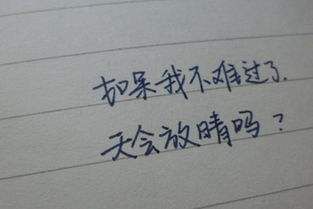 如果我不难过了.
天会放晴吗?